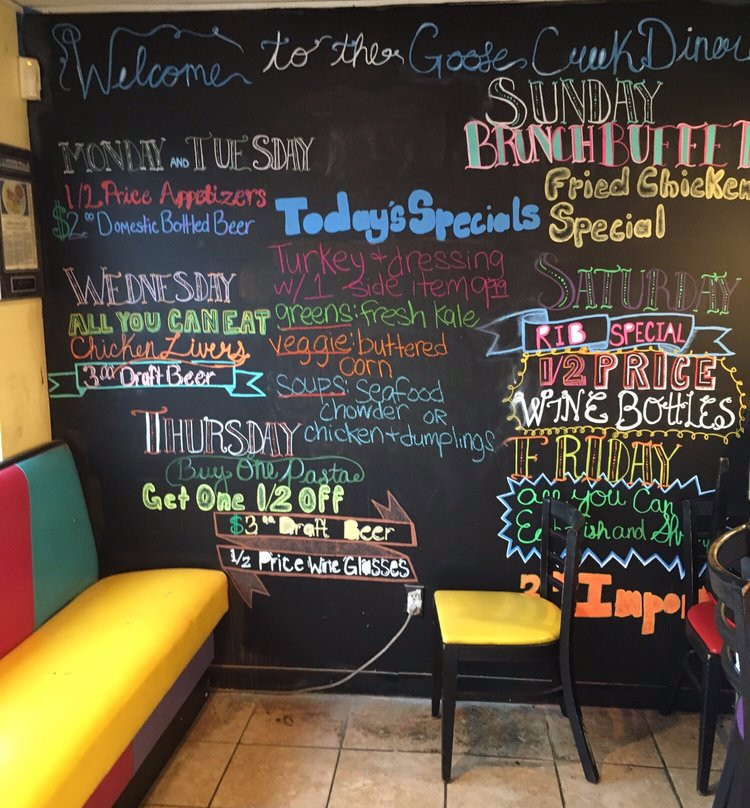 Welcome to the Goose Creek Diner
MONDAY AND TUESDAY
1/2 Price Appetizers
$2.00 Domestic Bottled Beer
WEDNESDAY
ALL YOU CAN EAT
Chicken Livers
3.00 Draft Beer
THURSDAY
Buy One Pasta
Get One 1/2 Off
$3.00 Draft Beer
1/2 Price Wine Glasses
Today's Specials
Turkey + dressing
w/ 1 side item
greens: fresh kale
veggie: buttered
corn
soups: seafood
chowder or
chicken + dumplings
SUNDAY
BRUNCH BUFFET
Fried Chicken
Special
SATURDAY
RIB SPECIAL
1/2 PRICE
WINE BOTTLES
FRIDAY
all you Can
Eat Fish and
Impo